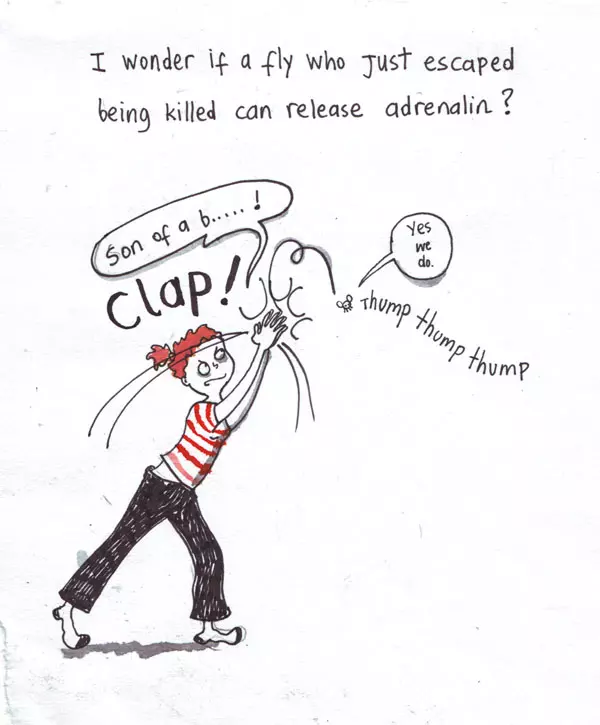 I wonder if a fly who just escaped
being killed can release adrenalin?
Son of a b.....!
Clap!
Yes
we
do.
Thump thump thump